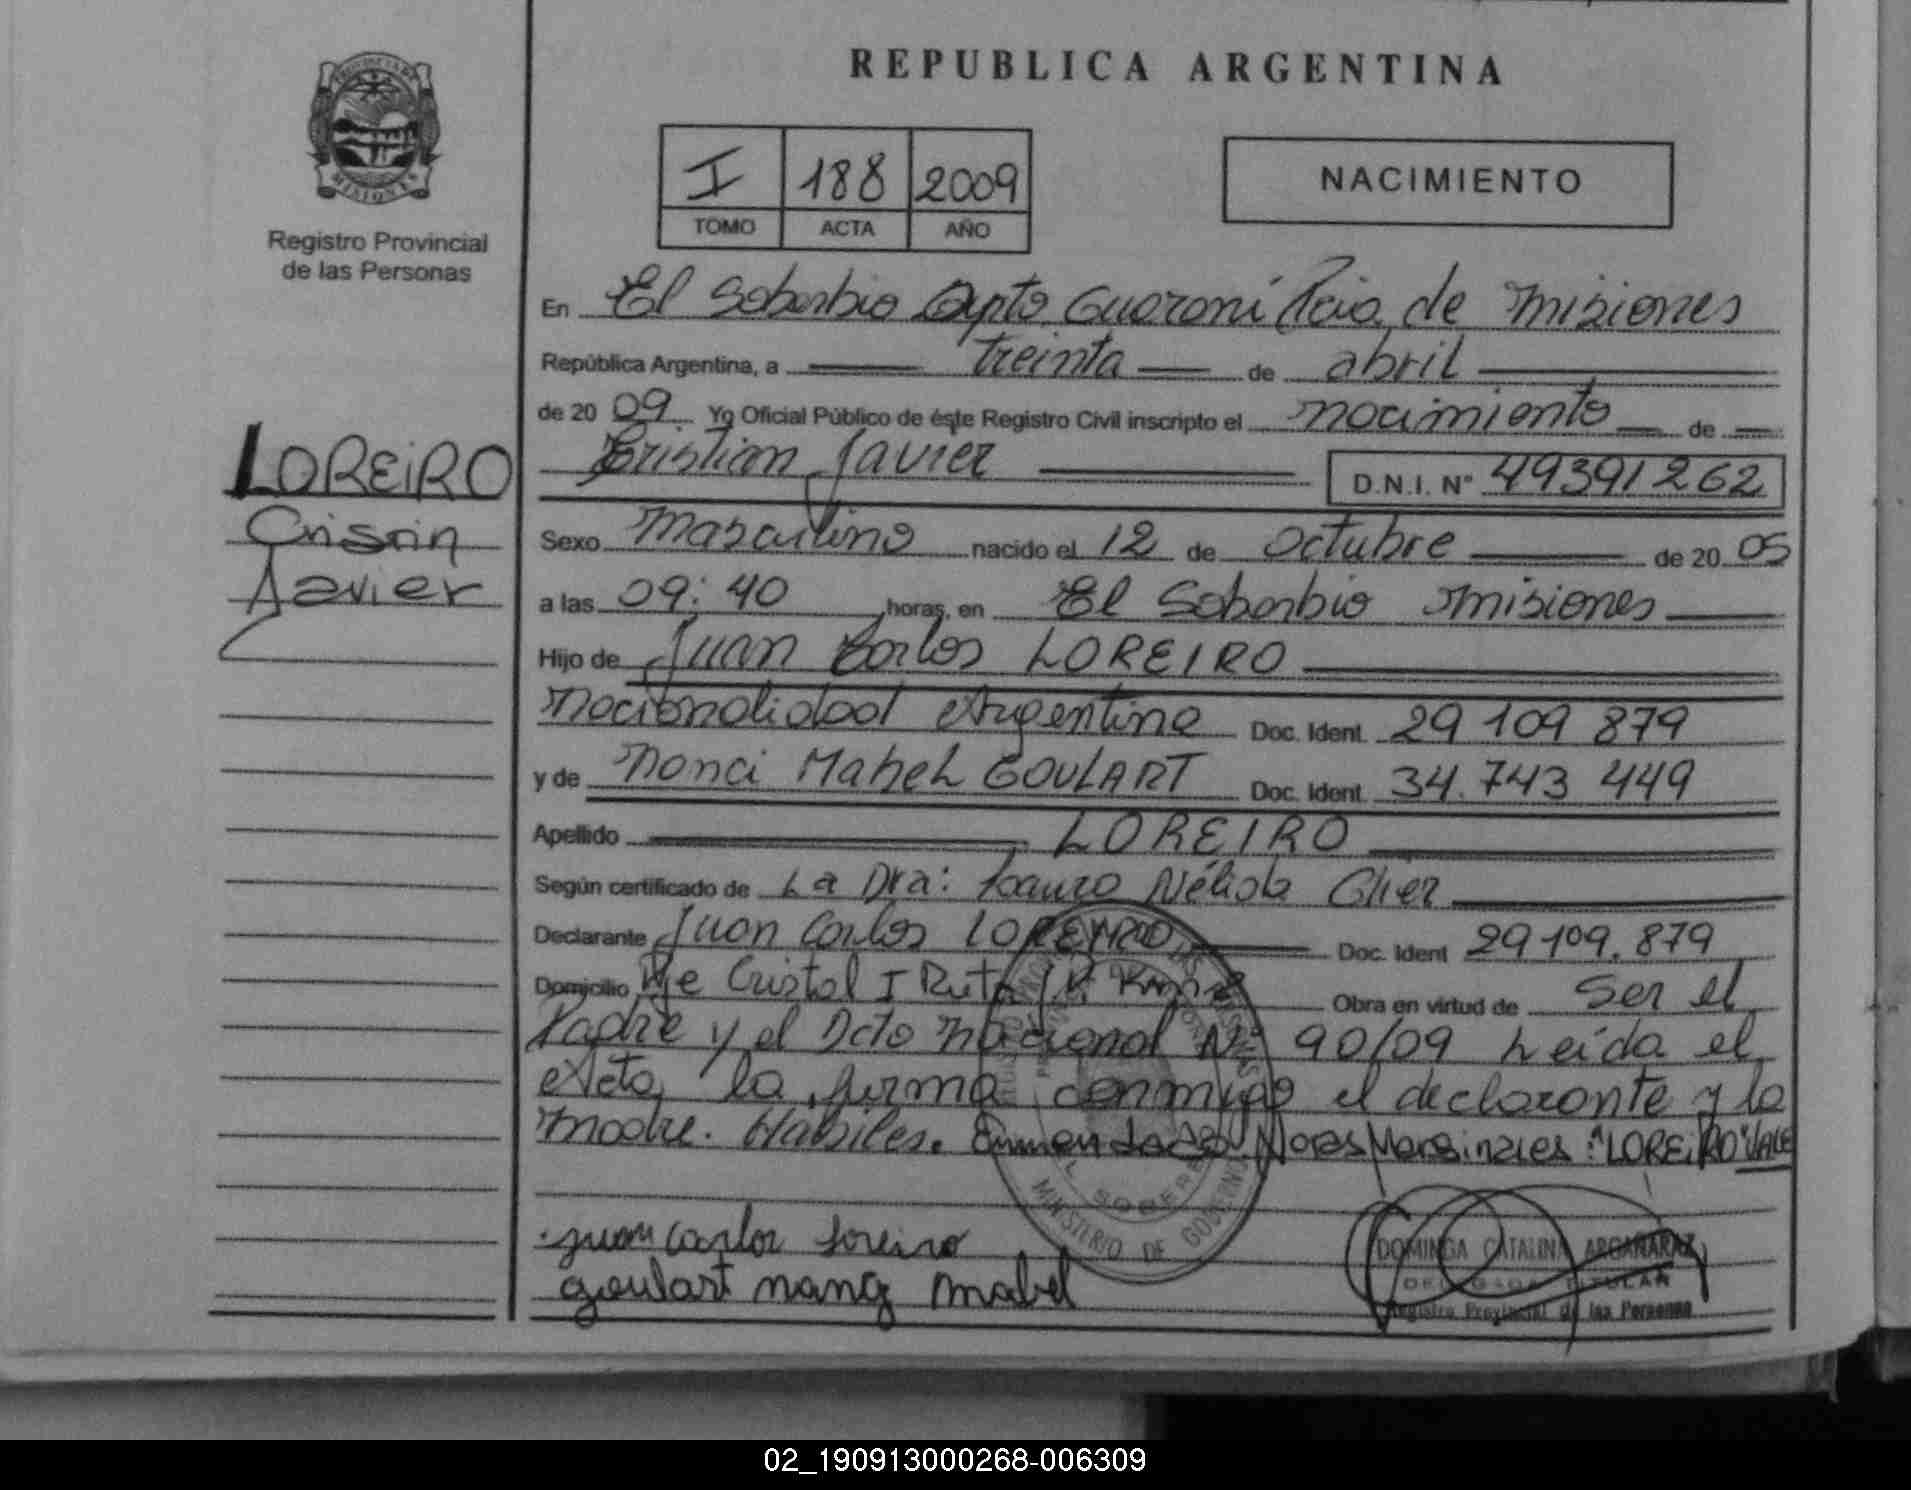 PROVINCIA DE
MISIONES
Registro Provincial
de las Personas
LOREIRO
Cristin
Javier
REPUBLICA ARGENTINA
I 188 2009
TOMO ACTA AÑO
NACIMIENTO
En El Soberbio Dpto Guaraní Pcia de Misiones
República Argentina, a treinta de abril
de 20 09 Yo Oficial Público de éste Registro Civil inscripto el nacimiento de
Cristian Javier D.N.I. N° 49391262
Sexo Masculino nacido el 12 de octubre de 20 05
a las 09:40 horas, en El Soberbio Misiones
Hijo de Juan Carlos LOREIRO
nacionalidad Argentina Doc. Ident. 29 109 879
y de Nanci Mabel GOULART Doc. Ident. 34.743 449
Apellido LOREIRO
Según certificado de La Dra: Nélida
Declarante Juan Carlos LOREIRO Doc. Ident 29109.879
Domicilio Pje Cristal I Ruta Obra en virtud de Ser el
Padre y el Dcto Nacional N° 90/09 Leída el
Acta, la firma conmigo el declarante y la
madre. Hábiles. Enmendado Notas Marginales: "LOREIRO" VALE
MINISTERIO DE GOBIERNO
juan carlos loreiro
goulart nancy mabel
DOMINGA CATALINA ARGAÑARAZ
DELEGADA TITULAR
Registro Provincial de las Personas
02_190913000268-006309